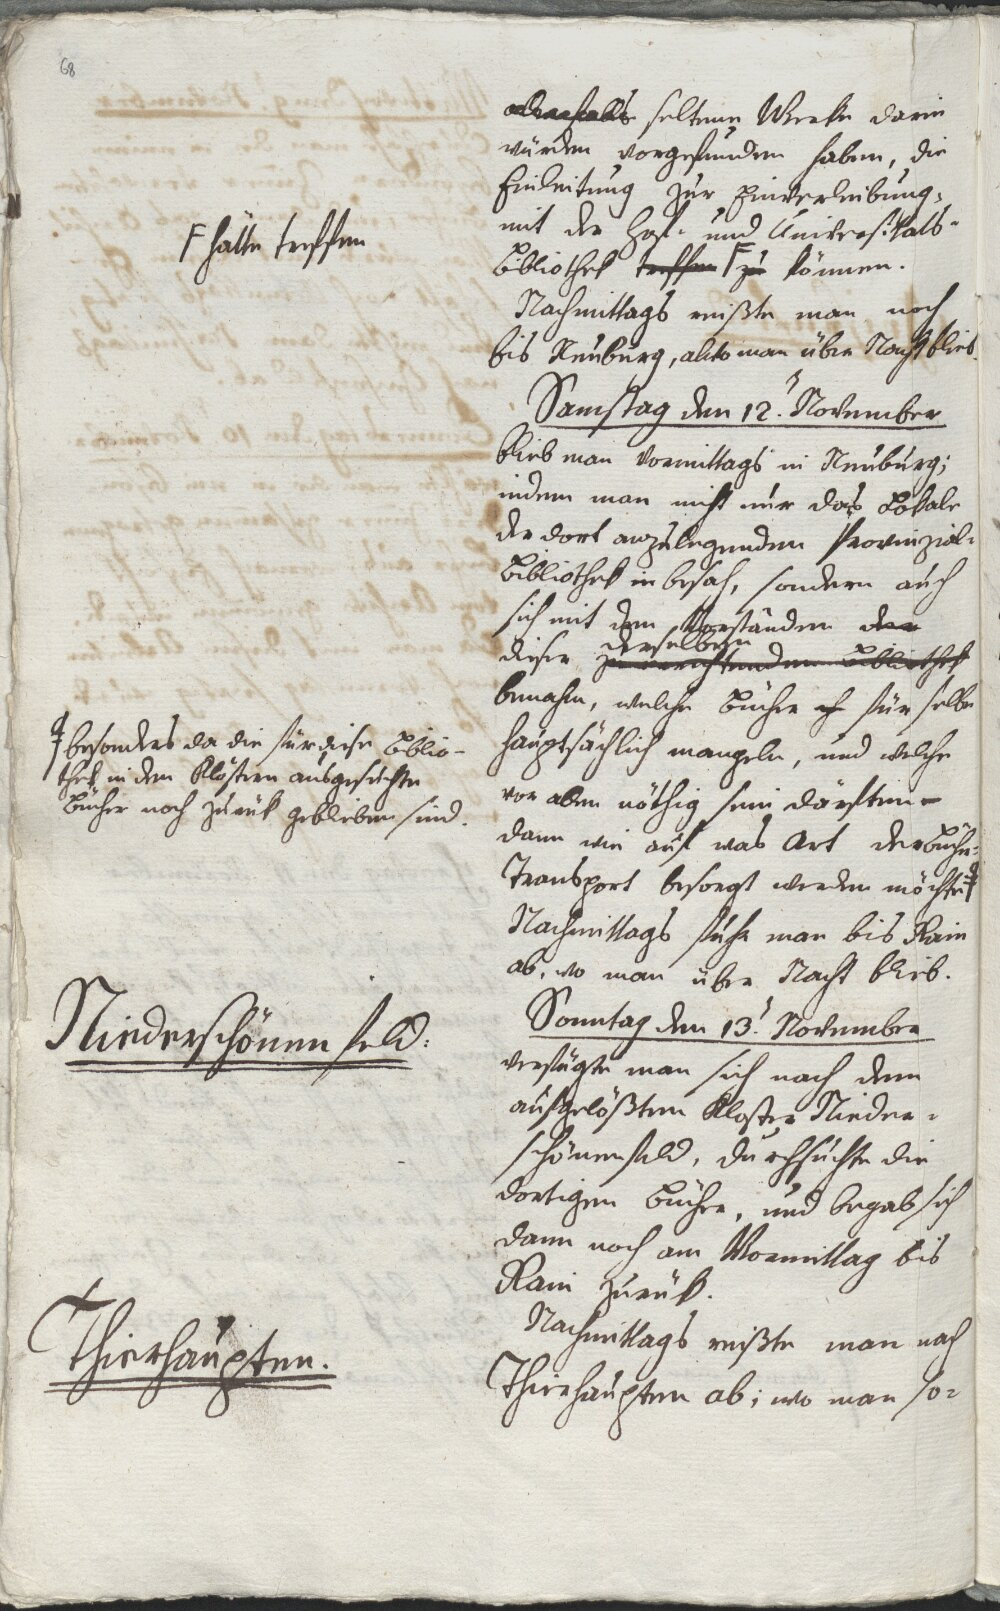 68
seltene Werke darin
würden vorgefunden haben, die
Einleitung zur Einverleibung,
mit der Hof- und Universitäts-
Bibliothek treffen F zu können.
F hätte treffen
Nachmittags reißte man noch
bis Neuburg, allwo man über Nacht blieb.
Samstag den 12. November
blieb man Vormittags in Neuburg;
indem man nicht nur das Lokale
der dort anzulegenden Provinzial-
Bibliothek in besah, sondern auch
sich mit den Vorständen der
derselben
dieser zu errichtenden Bibliothek
benahm, welche Bücher für selbe
hauptsächlich mangeln, und welche
vor allem nöthig sein därften
dann wie auf was Art der Bücher-
Transport besorgt werden möchte
besonders da die für diese Biblio-
thek in den Klöstern ausgesuchte
Bücher noch zurük geblieben sind.
Nachmittags fuhr man bis Rain
ab, wo man über Nacht blieb.
Niederschönenfeld:
Sonntag den 13. November
verfügte man sich nach dem
aufgelößten Kloster Nieder-
schönenfeld, durchsuchte die
dortigen Bücher, und begab sich
dann noch am Vormittag bis
Rain zurük.
Thierhaupten.
Nachmittags reißte man nach
Thierhaupten ab; wo man so-